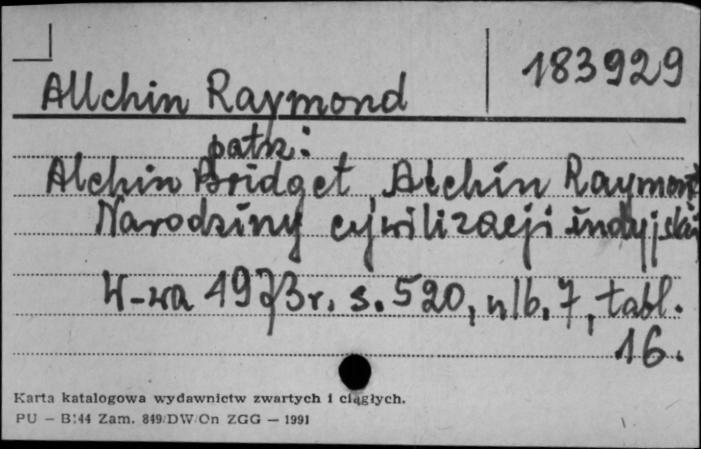 183929
Allchin Raymond
patrz:
Alchin Bridget, Alchin Raymond
Narodziny cywilizacji indyjski
W-wa 1973 r. s. 520, nlb. 7, tabl.
16.
Karta katalogowa wydawnictw zwartych i ciągłych.
PU — B/44 Zam. 849/DW/On ZGG — 1991